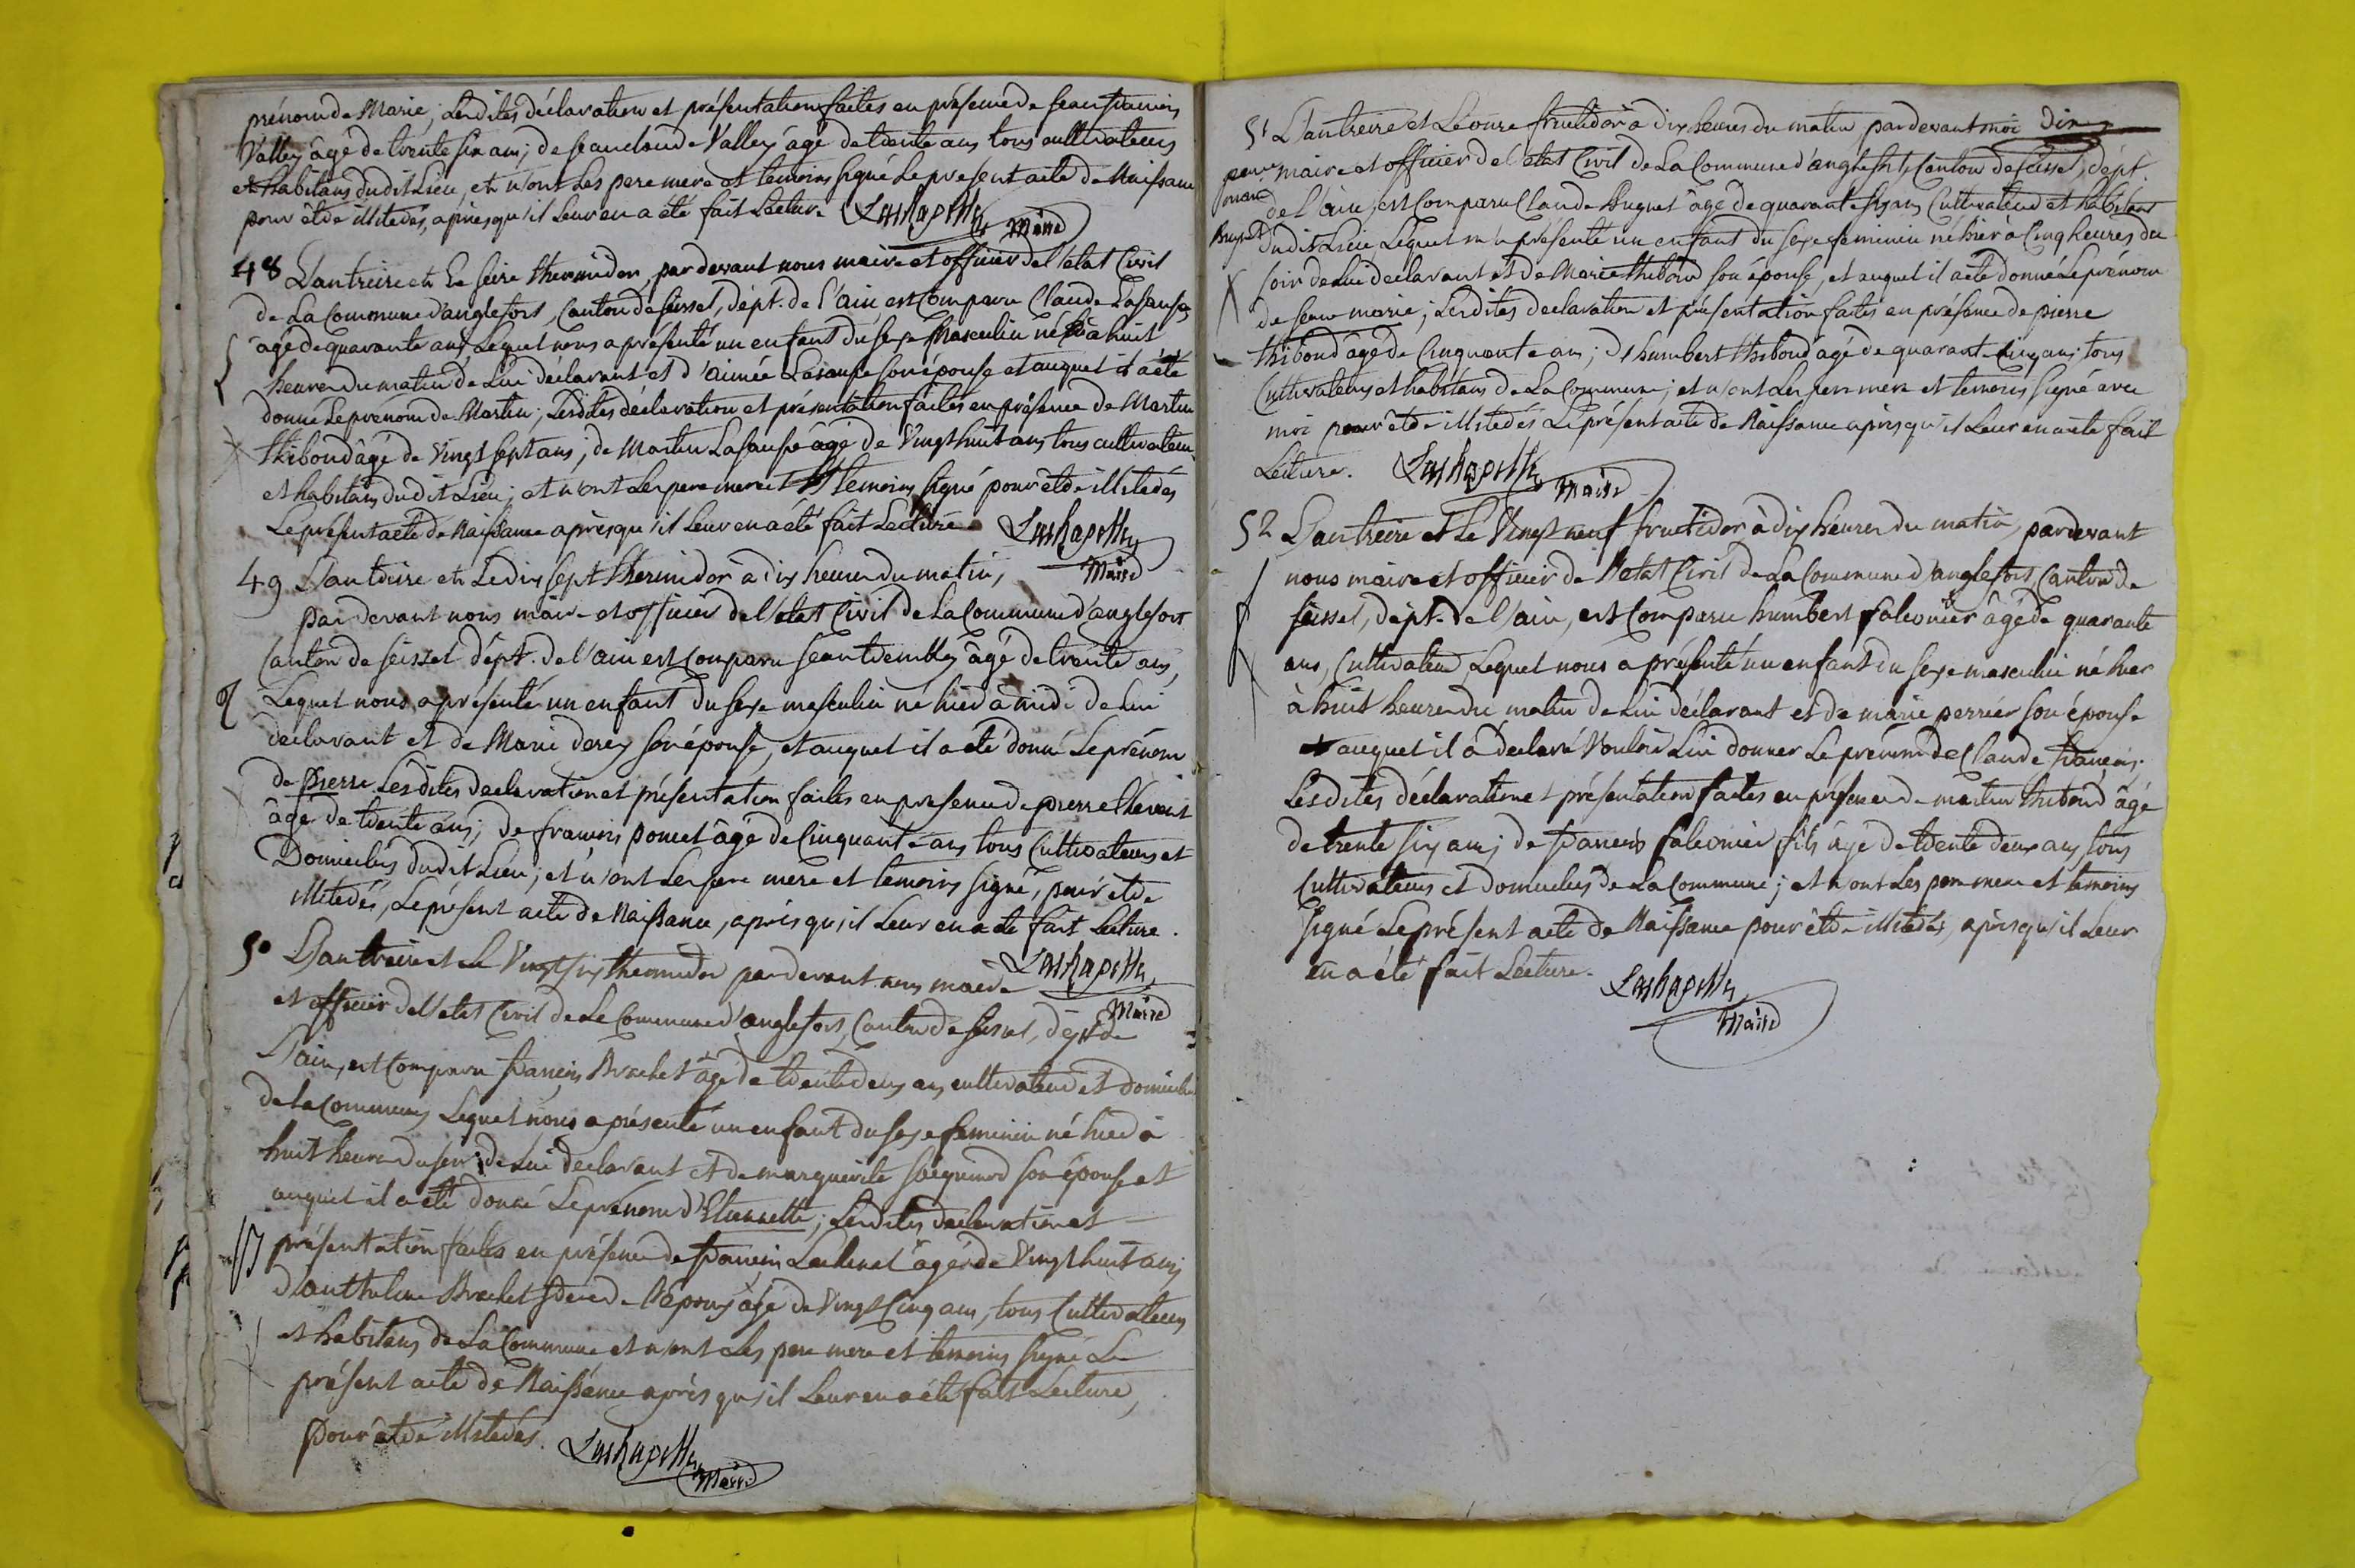 prénom de Marie; Lesdites déclaration et présentation faites en présence de Jean françois
Valley âgé de trente six ans; de Jean claude Valley âgé de trente ans tous cultivateurs
et habitans dudit Lieu, et n'ont Les pere mere et temoins signé Le present acte de Naissance
pour être illiterés, après qu'il Leur en a été fait Lecture
Maire
48 L'an treize et Le seize thermidor, par devant nous maire et officier de l'état Civil
de La Commune d'anglefort, Canton de seissel, dépt. de l'ain, est Comparu Claude Lasausse
âgé de quarante ans Lequel nous a présenté un enfant du sexe Masculin né à huit
heures du matin de Lui déclarant et d'aimée Lasausse son épouse et auquel il a été
donné Le prénom de Martin; Lesdites déclaration et présentation faites en présence de Martin
thiboud âgé de Vingt sept ans; de Martin Lasausse âgé de Vingt huit ans tous cultivateurs
et habitans dudit Lieu; et n'ont Les pere mere et temoins signé pour être illiterés
Le présent acte de Naissance après qu'il Leur en a été fait Lecture
Maire
49 L'an treize et Le dix sept thermidor à dix heures du matin,
par devant nous maire et officier de l'état Civil de La Commune d'anglefort
Canton de seissel dépt. de l'ain est Comparu Jean âgé de trente ans,
Lequel nous a présenté un enfant du sexe masculin né hier à midi de Lui
déclarant et de Marie derey son épouse, et auquel il a été donné Le prénom
de Pierre Lesdites declaration et présentation faites en presence de pierre
âgé de trente ans; de françois poncet âgé de Cinquante ans tous Cultivateurs et
Domiciliés dudit Lieu; et n'ont Les pere mere et temoins signé, pour être
illiterés, Le présent acte de Naissance, après qu'il Leur en a été fait Lecture.
50 L'an treize et Le Vingt six thermidor par devant nous maire
et officier de l'état Civil de La Commune d'anglefort, Canton de seissel, dépt de
Maire
L'ain, est Comparu françois Brachet âgé de trente deux ans cultivateur et domicilié
de la Commune, Lequel nous a présenté un enfant du sexe feminin né hier à
huit heures du soir de Lui declarant et de marguerite son épouse et
auquel il a été donné Le prénom d'Etiennette; Lesdites declaration et
présentation faites en présence de françois âgé de Vingt huit ans
d'anthelme Brachet âgé de Vingt Cinq ans, tous Cultivateurs
et habitans de La Commune et n'ont Les pere mere et temoins signé Le
présent acte de Naissance après qu'il Leur en a été fait Lecture,
pour être illiterés.
Maire
51 L'an treize et Le onze fructidor à dix heures du matin, par devant moi
maire et officier de l'état Civil de La Commune d'anglefort, Canton de seissel, dépt.
de l'ain, est Comparu Claude Buguet âgé de quarante six ans Cultivateur et habitant
dudit Lieu, Lequel m'a présenté un enfant du sexe feminin né hier à Cinq heures du
soir de Lui declarant et de Marie thiboud son épouse, et auquel il a été donné Le prénom
de Jeanne marie; Lesdites declaration et présentation faites en présence de pierre
thiboud âgé de Cinquante ans; d'humbert thiboud âgé de quarante Cinq ans; tous
Cultivateurs et habitans de La Commune; et n'ont Les pere mere et temoins signé avec
moi pour être illiterés Le présent acte de Naissance après qu'il Leur en a été fait
Lecture.
Maire
52 L'an treize et Le Vingt neuf fructidor, à dix heures du matin, par devant
nous maire et officier de l'état Civil de La Commune d'anglefort, Canton de
seissel, dépt. de l'ain, est Comparu humbert falconier âgé de quarante
ans, Cultivateur, Lequel nous a présenté un enfant du sexe masculin né hier
à huit heures du matin de Lui déclarant et de marie perrier son épouse
auquel il a declaré Vouloir Lui donner Le prénom de Claude françois;
Lesdites déclaration et présentation faites en présence de martin thiboud âgé
de trente six ans; de françois falconier fils âgé de trente deux ans, tous
Cultivateurs et domiciliés de La Commune; et n'ont Les pere mere et temoins
signé Le présent acte de Naissance pour être illiterés, après qu'il Leur
en a été fait Lecture.
Maire